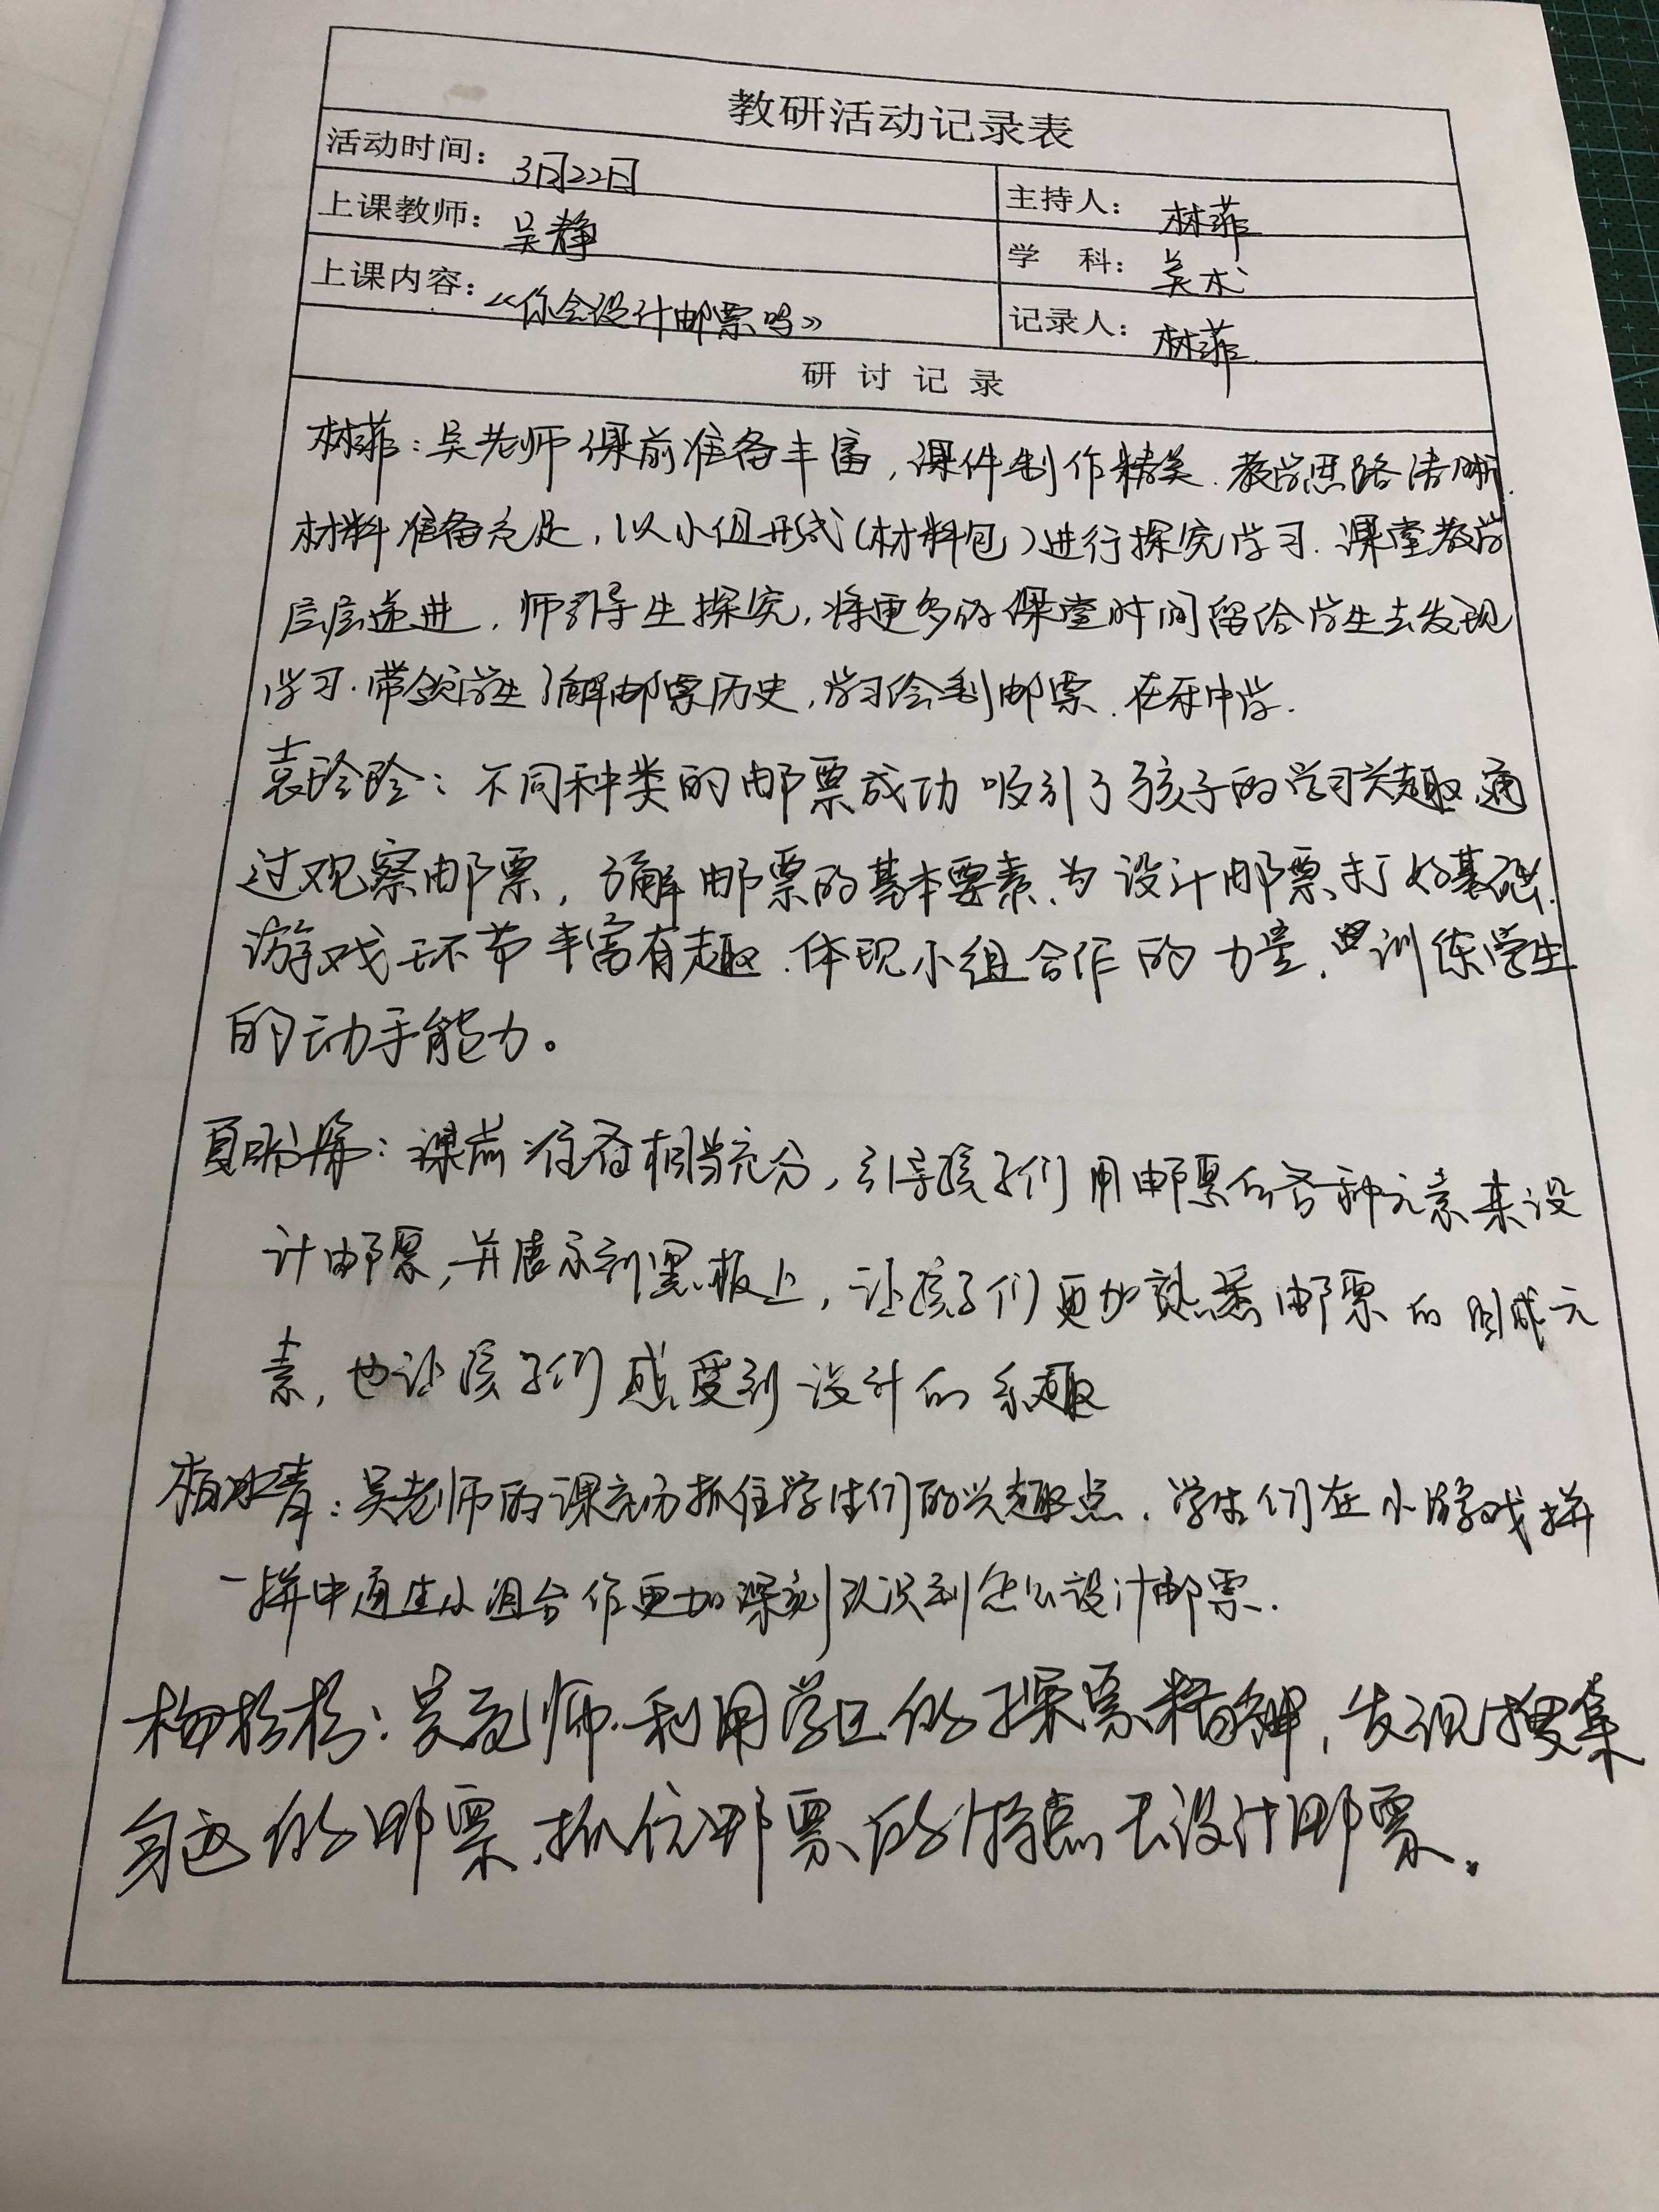 教研活动记录表
活动时间：3月22日
主持人：林菲
上课教师：吴静
学 科：美术
上课内容：《你会设计邮票吗》
记录人：林菲
研 讨 记 录
林菲：吴老师课前准备丰富，课件制作精美.教学思路清晰.
材料准备充足，以小组形式(材料包)进行探究学习.课堂教学
层层递进，师引导生探究，将更多的课堂时间留给学生去发现
学习.带领学生了解邮票历史，学习绘制邮票.在玩中学.
袁玲玲：不同种类的邮票成功吸引了孩子的学习兴趣，通
过观察邮票，了解邮票的基本要素、为设计邮票打好基础.
游戏环节丰富有趣.体现小组合作的力量，训练学生
的动手能力。
夏：课前准备相当充分，引导孩子们用邮票的各种元素来设
计邮票，并展示到黑板上，让孩子们更加熟悉邮票的组成元
素，也让孩子们感受到设计的乐趣
柏冰青：吴老师的课充分抓住学生们的兴趣点.学生们在小游戏拼
一拼中通过小组合作更加深刻认识到怎么设计邮票.
吴老师利用学区的探索精神，发现搜集
身边的邮票.抓住邮票的特点去设计邮票。